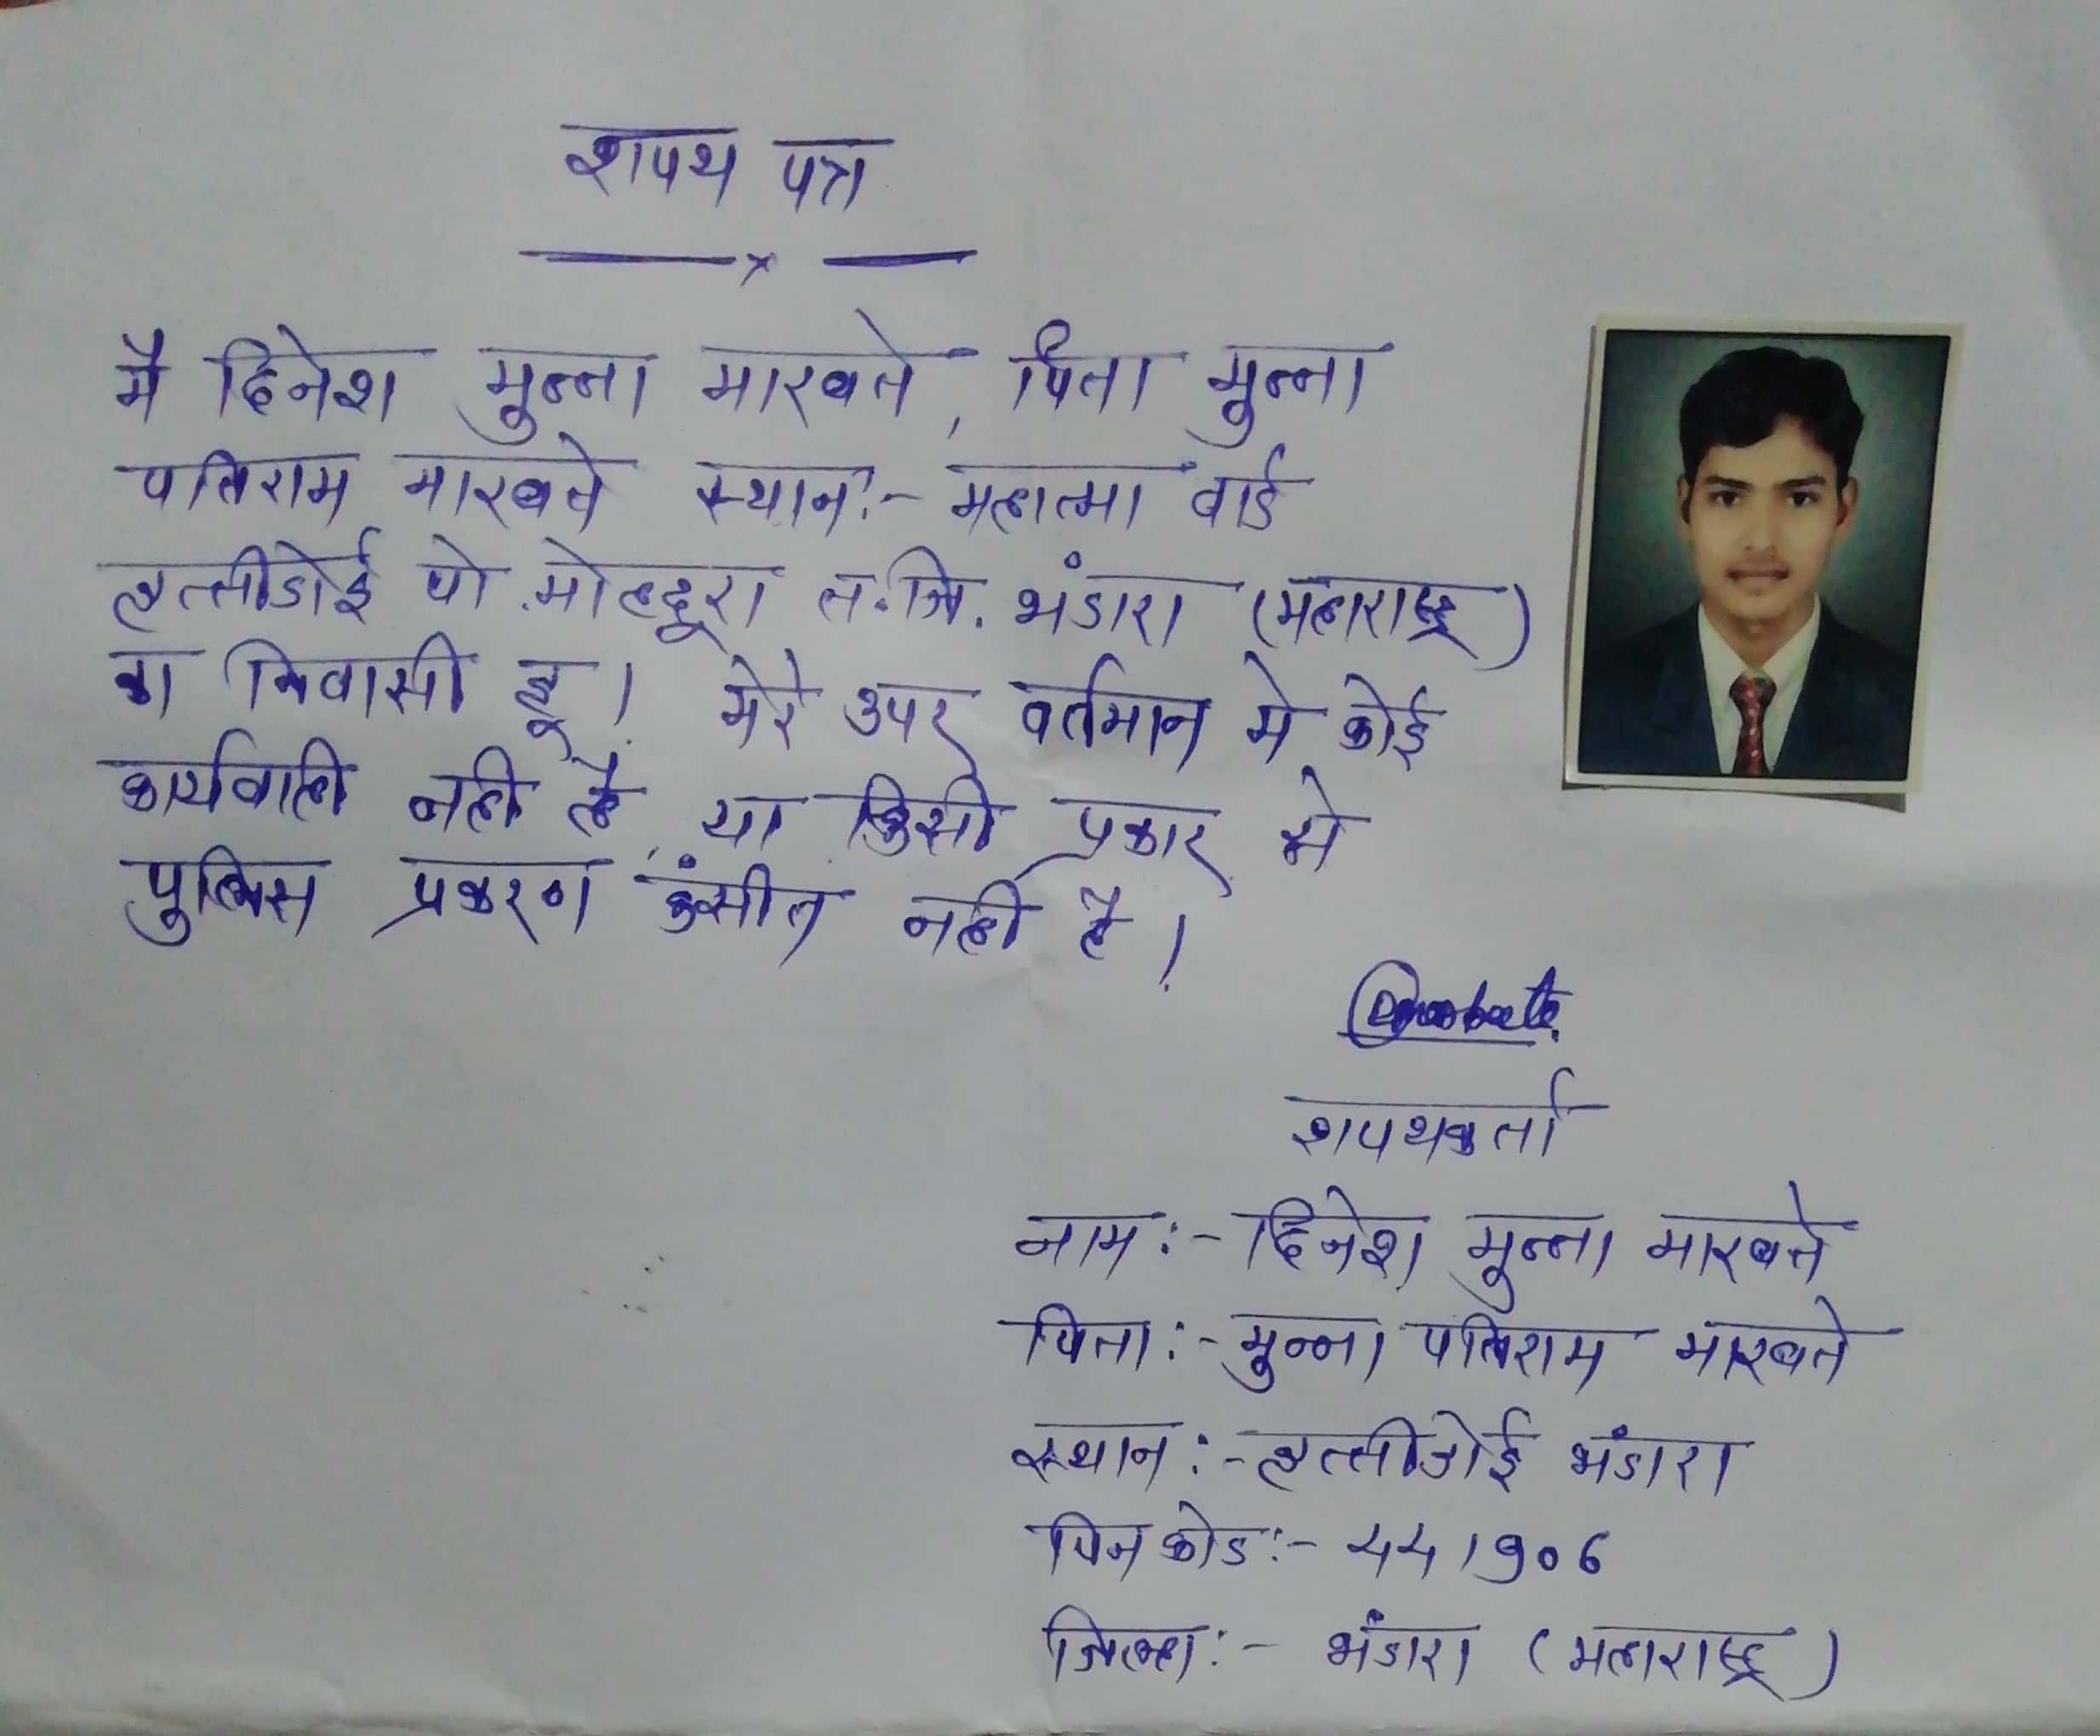 शपथ पत्र
मै दिनेश मुन्ना मारबते, पिता मुन्ना
पतिराम मारबते स्थान:- महात्मा वार्ड
हत्तीडोई पो. मोहदूरा त.जि. भंडारा (महाराष्ट्र)
का निवासी हू। मेरे उपर वर्तमान मे कोई
कार्यवाही नही है, या किसी प्रकार से
पुलिस प्रकरण नही है।
शपथकर्ता
नाम:- दिनेश मुन्ना मारबते
पिता:- मुन्ना पतिराम मारबते
स्थान:- हत्तीडोई भंडारा
पिन कोड:- 441906
जिल्हा:- भंडारा (महाराष्ट्र)